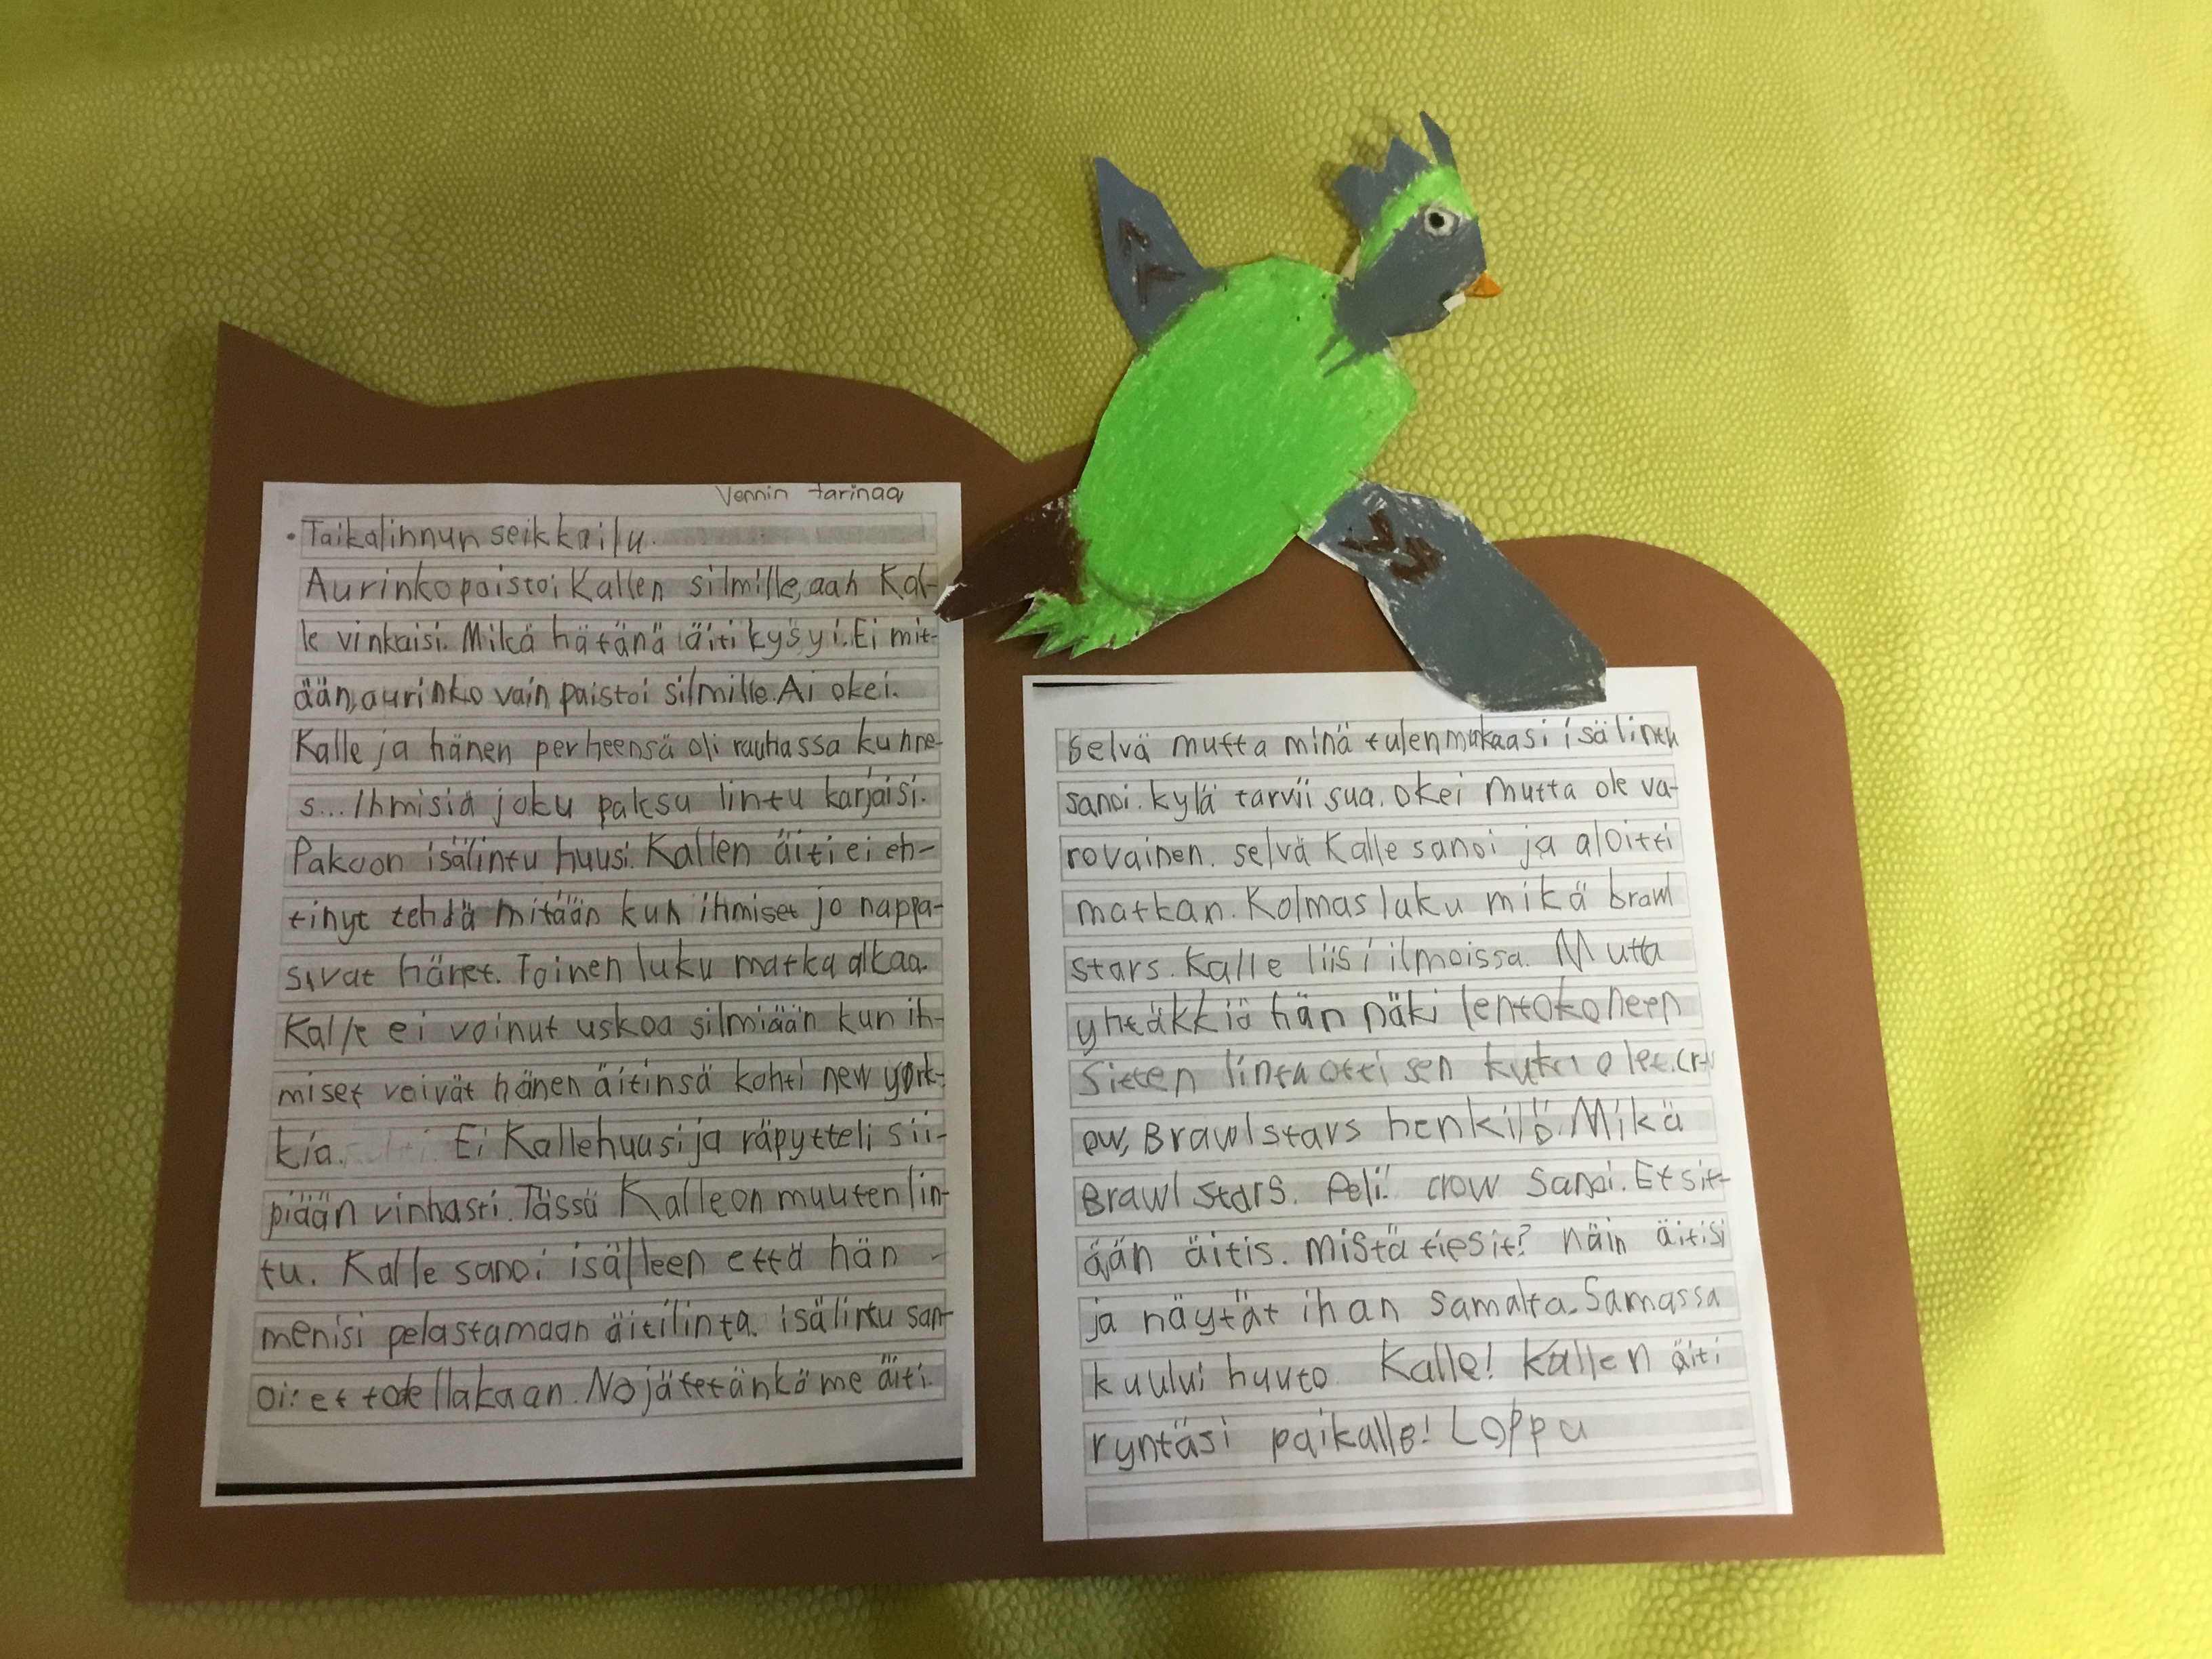 Vennin tarinaa
Taikalinnun seikkailu.
Aurinko paistoi Kallen silmille, aah Kal-
le vinkaisi. Mikä hätänä äiti kysyi. Ei mit-
ään, aurinko vain paistoi silmille. Ai okei.
Kalle ja hänen perheensä oli rauhassa kunne-
s... Ihmisiä joku paksu lintu karjaisi.
Pakoon isälintu huusi. Kallen äiti ei eh-
tinyt tehdä mitään kun ihmiset jo nappa-
sivat hänet. Toinen luku matka alkaa.
Kalle ei voinut uskoa silmiään kun ih-
miset veivät hänen äitinsä kohti new york-
kia. Ei Kalle huusi ja räpytteli sii-
piään vinhasti. Tässä Kalle on muuten lin-
tu. Kalle sanoi isälleen että hän
menisi pelastamaan äitilinta. isälintu san-
oi: et todellakaan. No jätetänkö me äiti.
Selvä mutta minä tulen mukaasi isälintu
sanoi. kylä tarvii sua. okei mutta ole va-
rovainen. selvä Kalle sanoi ja aloitti
matkan. Kolmas luku mikä brawl
stars. Kalle liisi ilmoissa. Mutta
yhtäkkiä hän näki lentokoneen
Sitten lintu otti sen kuka olet. cr-
ow, Brawlstars henkilö. Mikä
Brawl stars. Peli! crow sanoi. Etsit-
ään äitis. mistä tiesit? näin äitisi
ja näytät ihan samalta. Samassa
kuului huuto Kalle! Kallen äiti
ryntäsi paikalle! Loppu